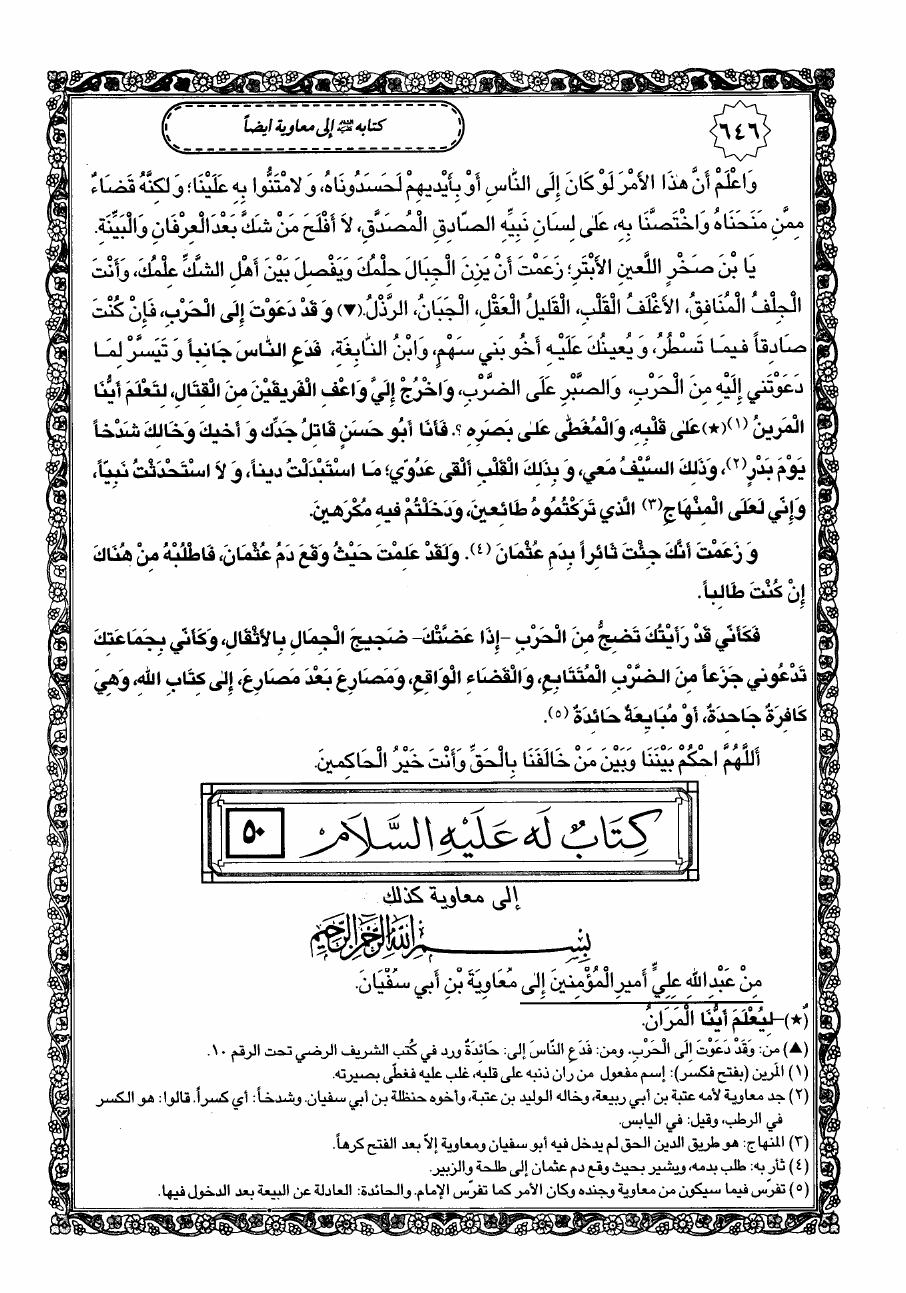 ٦٤٦
كتابه عليه السلام إلى معاوية ايضاً
وَاعْلَمْ أَنَّ هٰذَا الأَمْرَ لَوْ كَانَ إِلَى النَّاسِ أَوْ بِأَيْدِيهِمْ لَحَسَدُونَاهُ، وَ لَامْتَنُّوا بِهِ عَلَيْنَا؛ وَ لٰكِنَّهُ قَضَاءٌ
مِمَّنِ مَنَحَنَاهُ وَاخْتَصَّنَا بِهِ، عَلىٰ لِسَانِ نَبِيِّهِ الصَّادِقِ الْمُصَدَّقِ، لاَ أَفْلَحَ مَنْ شَكَّ بَعْدَ الْعِرْفَانِ وَالْبَيِّنَةِ.
يَا بْنَ صَخْرٍ اللَّعينِ الأَبْتَرِ؛ زَعَمْتَ أَنْ يَزِنَ الْجِبَالَ حِلْمُكَ وَيَفْصِلَ بَيْنَ أَهْلِ الشَّكِّ عِلْمُكَ، وَأَنْتَ
الْجِلْفُ الْمُنَافِقُ، الأَغْلَفُ الْقَلْبِ، الْقَليلُ الْعَقْلِ، الْجَبَانُ، الرَّذْلُ.(▼) وَ قَدْ دَعَوْتَ إِلَى الْحَرْبِ، فَإِنْ كُنْتَ
صَادِقاً فيمَا تَسْطُرُ، وَ يُعينُكَ عَلَيْهِ أَخُو بَني سَهْمٍ، وَابْنُ النَّابِغَةِ، فَدَعِ النَّاسَ جَانِباً وَ تَيَسَّرْ لِمَا
دَعَوْتَني إِلَيْهِ مِنَ الْحَرْبِ، وَالصَّبْرِ عَلَى الضَّرْبِ، وَاخْرُجْ إِلَيَّ وَاعْفِ الْفَريقَيْنِ مِنَ الْقِتَالِ، لِتَعْلَمَ أَيُّنَا
الْمَرينُ (١)(★) عَلىٰ قَلْبِهِ، وَالْمُغَطّىٰ عَلىٰ بَصَرِهِ ؟. فَأَنَا أَبُو حَسَنٍ قَاتِلُ جَدِّكَ وَ أَخيكَ وَخَالِكَ شَدْخاً
يَوْمَ بَدْرٍ(٢)، وَذٰلِكَ السَّيْفُ مَعي، وَ بِذٰلِكَ الْقَلْبِ أَلْقىٰ عَدُوّي؛ مَا اسْتَبْدَلْتُ ديناً، وَ لاَ اسْتَحْدَثْتُ نَبِيّاً،
وَ إِنّي لَعَلَى الْمِنْهَاجِ(٣) الَّذي تَرَكْتُمُوهُ طَائِعينَ، وَدَخَلْتُمْ فيهِ مُكْرَهينَ.
وَ زَعَمْتَ أَنَّكَ جِئْتَ ثَائِراً بِدَمِ عُثْمَانَ (٤). وَلَقَدْ عَلِمْتَ حَيْثُ وَقَعَ دَمُ عُثْمَانَ، فَاطْلُبْهُ مِنْ هُنَاكَ
إِنْ كُنْتَ طَالِباً.
فَكَأَنّي قَدْ رَأَيْتُكَ تَضِجُّ مِنَ الْحَرْبِ –إِذَا عَضَّتْكَ– ضَجيجَ الْجِمَالِ بِالأَثْقَالِ، وَكَأَنّي بِجَمَاعَتِكَ
تَدْعُوني جَزَعاً مِنَ الضَّرْبِ الْمُتَتَابِعِ، وَالْقَضَاءِ الْوَاقِعِ، وَمَصَارِعَ بَعْدَ مَصَارِعَ، إِلىٰ كِتَابِ اللهِ، وَهِيَ
كَافِرَةٌ جَاحِدَةٌ، أَوْ مُبَايِعَةٌ حَائِدَةٌ (٥).
أَللّٰهُمَّ احْكُمْ بَيْنَنَا وَبَيْنَ مَنْ خَالَفَنَا بِالْحَقِّ وَأَنْتَ خَيْرُ الْحَاكِمينَ.
كِتَابٌ لَهُ عَلَيْهِ السَّلَامُ ٥٠
إلى معاوية كذلك
بِسْمِ اللهِ الرَّحْمٰنِ الرَّحِيمِ
مِنْ عَبْدِ اللهِ عَلِيٍّ أَميرِ الْمُؤْمِنينَ إِلىٰ مُعَاوِيَةَ بْنِ أَبي سُفْيَانَ.
(★)–لِيُعْلَمَ أَيُّنَا الْمَرَانُ.
(▲) من: وَقَدْ دَعَوْتَ إِلَى الْحَرْبِ، ومن: فَدَعِ النَّاسَ إلى: حَائِدَةٌ ورد في كُتب الشريف الرضي تحت الرقم ١٠.
(١) المرين (بفتح فكسر): إسم مفعول من ران ذنبه على قلبه، غلب عليه فغطّى بصيرته.
(٢) جد معاوية لأمه عتبة بن أبي ربيعة، وخاله الوليد بن عتبة، وأخوه حنظلة بن أبي سفيان. وشدخاً: أي كسراً. قالوا: هو الكسر
في الرطب، وقيل: في اليابس.
(٣) المنهاج: هو طريق الدين الحق لم يدخل فيه أبو سفيان ومعاوية إلاّ بعد الفتح كرهاً.
(٤) ثأر به: طلب بدمه، ويشير بحيث وقع دم عثمان إلى طلحة والزبير.
(٥) تفرّس فيما سيكون من معاوية وجنده وكان الأمر كما تفرّس الإمام. والحائدة: العادلة عن البيعة بعد الدخول فيها.